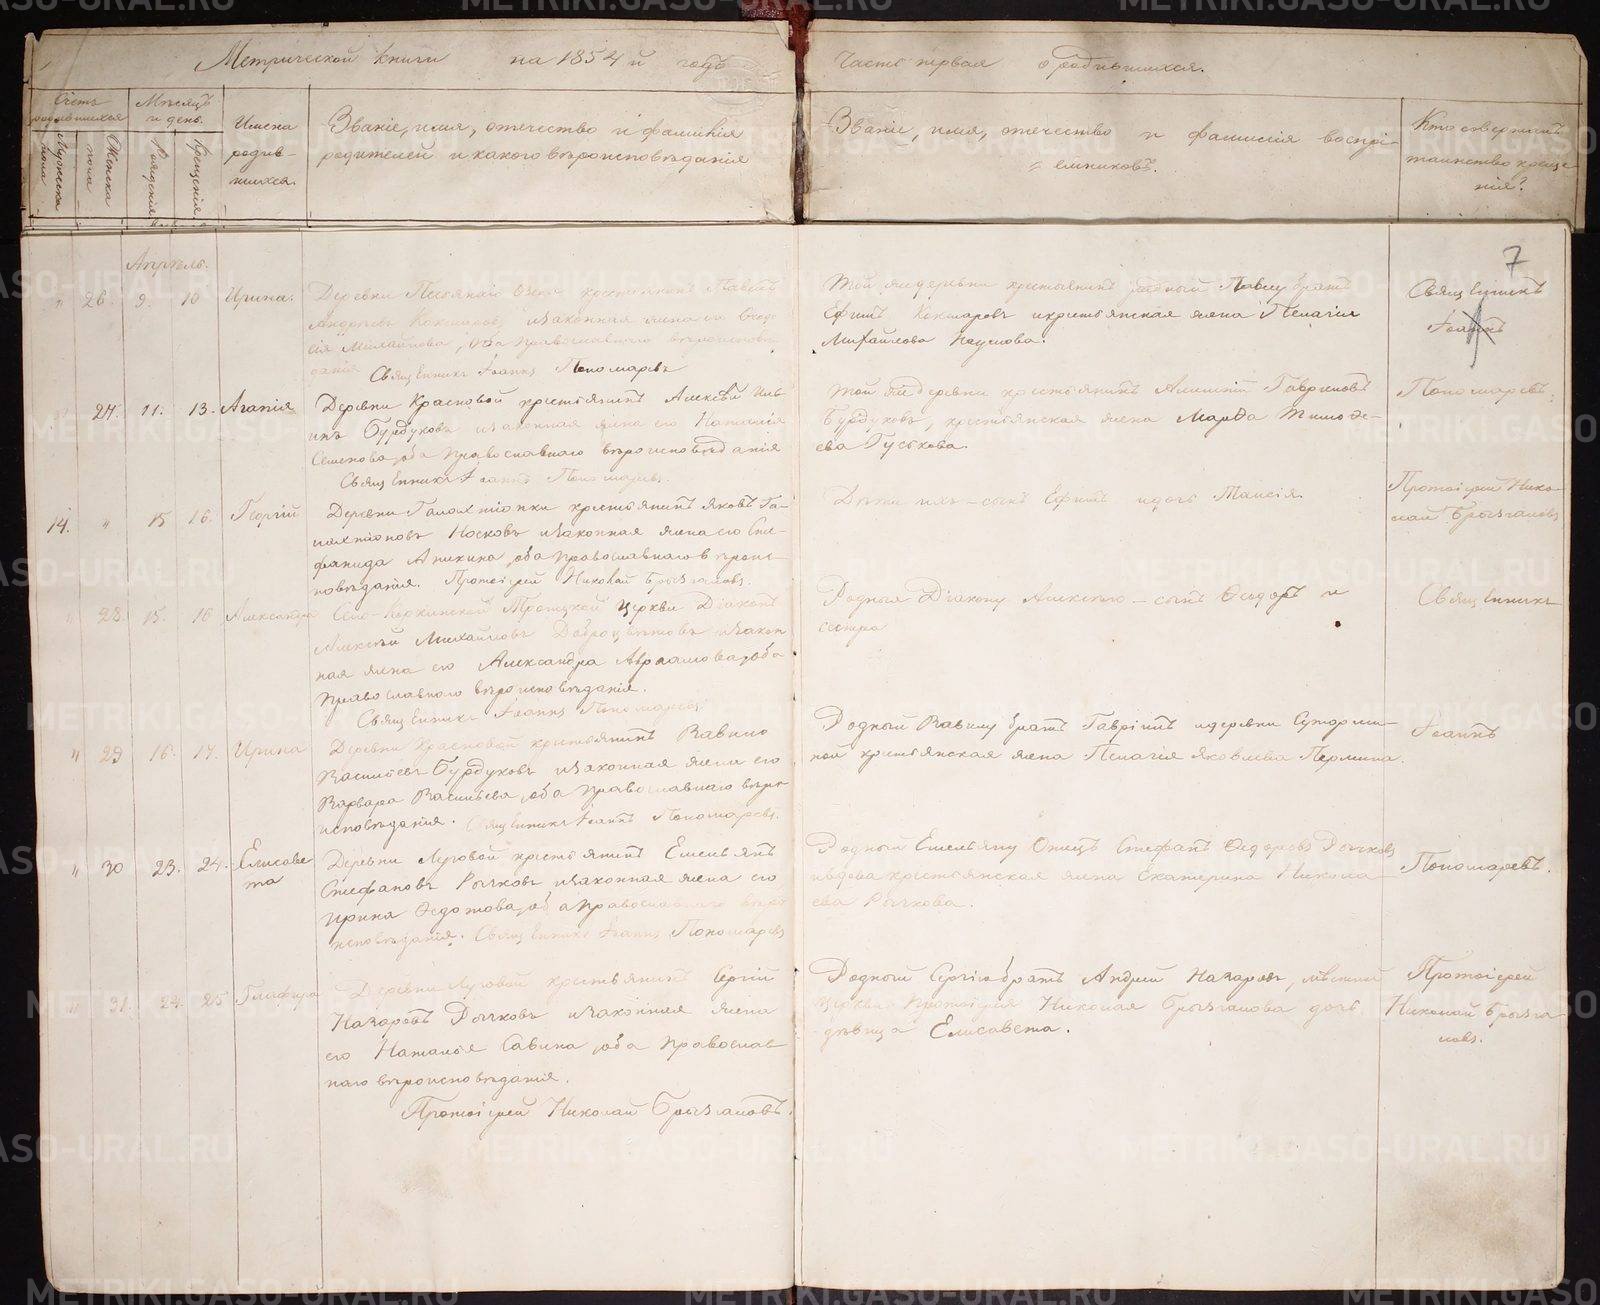 Метрической книги на 1854й годъ
Часть первая о родившихся.
Счетъ родившихся
Мужеска пола
Женска пола
Мѣсяцъ и день.
Рожденія
Крещенія
Имена
родив-
шихся.
Званіе, имя, отечество и фамилія
родителей и какого вѣроисповѣданія
Званіе, имя, отчество и фамилія воспрі-
емниковъ.
Кто совершалъ
таинство креще-
нія?
7
Апрѣль.
" 26. 9. 10 Ирина.
Деревни крестьянинъ
Андреевъ законная жена его
Михайлова, оба православнаго вѣроисповѣ-
данія
Священникъ Іоаннъ Пономаревъ
Той же деревни крестьянинъ родный братъ
Ефимъ и крестьянская жена Пелагія
Михайлова
Священникъ
Іоаннъ
27. 11. 13. Агапія
Деревни Красновой крестьянинъ Алексѣй
Бурдуковъ и законная жена его Наталія
Семенова, оба православнаго вѣроисповѣданія
Священникъ Іоаннъ Пономаревъ.
Той же деревни крестьянинъ Гавриловъ
Бурдуковъ, крестьянская жена Марѳа Тимоѳе-
ева Гуськова.
Пономаревъ.
14. " 15 16. Георгій
Деревни крестьянинъ Яковъ Га-
лактіоновъ Носковъ и законная жена его Сте-
фанида Аникина, оба православнаго вѣроис-
повѣданія. Протоіерей Николай
Дѣти ихъ - сынъ Ефимъ и дочь Таисія.
Протоіерей Нико-
лай
" 28. 15. 16 Александра
Троицкой церкви Діаконъ
Алексѣй Михайловъ и закон-
ная жена его Александра оба
православнаго вѣроисповѣданія.
Священникъ Іоаннъ Пономаревъ
Родныя Діакону Алексѣю - сынъ Ѳедоръ и
сестра
Священникъ
" 29 16. 17. Ирина
Деревни Красновой крестьянинъ Вавило
Васильевъ Бурдуковъ и законная жена его
Варвара Васильева, оба православнаго вѣро-
исповѣданія. Священникъ Іоаннъ Пономаревъ.
Родный Вавилу братъ Гавріилъ и деревни
крестьянская жена Пелагія Яковлева
Іоаннъ
" 30 23. 24. Елисаве
та
Деревни Луговой крестьянинъ Емельянъ
Стефановъ Рычковъ, и законная жена его
Ирина Ѳедотова, оба православнаго вѣро
исповѣданія. Священникъ Іоаннъ Пономаревъ
Родный Емельяну Отецъ Стефанъ Ѳедоровъ Рычковъ
и вдова крестьянская жена Екатерина Никола
ева Рычкова.
Пономаревъ.
" 31. 24. 25 Глафира
Деревни Луговой крестьянинъ Сергій
Назаровъ Рычковъ и законная жена
его Наталья Савина, оба православ-
наго вѣроисповѣданія.
Протоіерей Николай
Родный Сергію братъ Андрей Назаровъ,
церкви Протоіерея Николая дочь
дѣвица Елисавета.
Протоіерей
Николай
METRIKI.GASO-URAL.RU